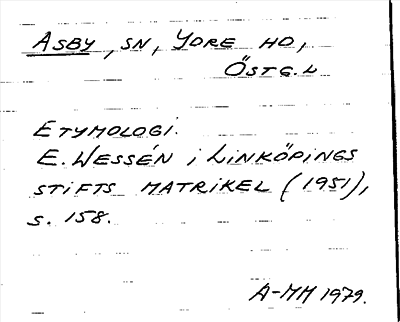 ASBY, SN, YDRE HD,
ÖSTG.L
ETYMOLOGI.
E. WESSÉN i LINKÖPINGS
STIFTS MATRIKEL (1951),
s. 158.
A-MM 1979.